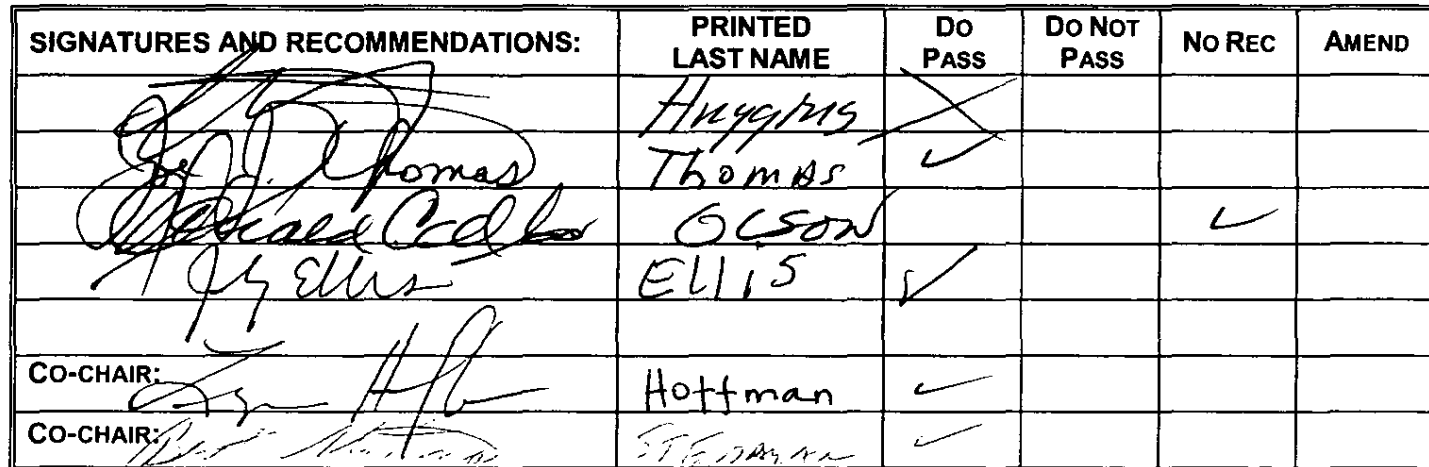 SIGNATURES AND RECOMMENDATIONS: PRINTED LAST NAME DO PASS DO NOT PASS NO REC AMEND
Huggins
Thomas Thomas ✓
OLSON ✓
Ellis Ellis ✓
CO-CHAIR: Hoffman ✓
CO-CHAIR: STEDMAN ✓